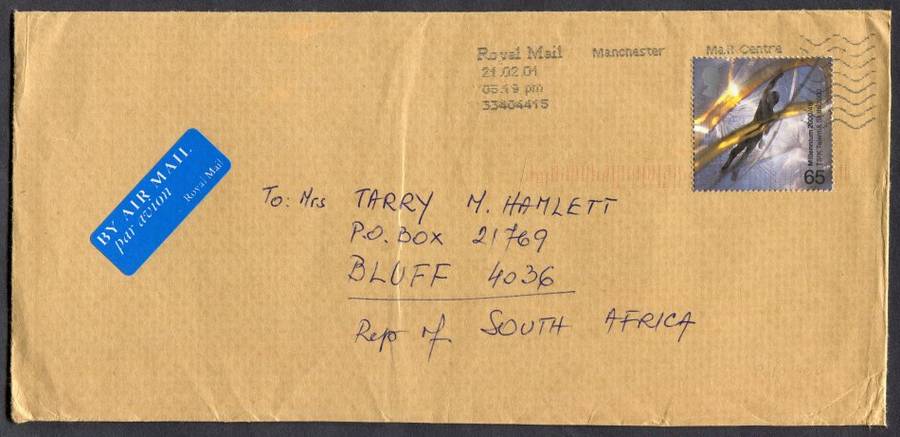 Royal Mail Manchester Mail Centre
21.02.01
05.19 pm
33404415
65
BY AIR MAIL
par avion
Royal Mail
To: Mrs TARRY M. HAMLETT
P.O. BOX 21769
BLUFF 4036
Rep of SOUTH AFRICA